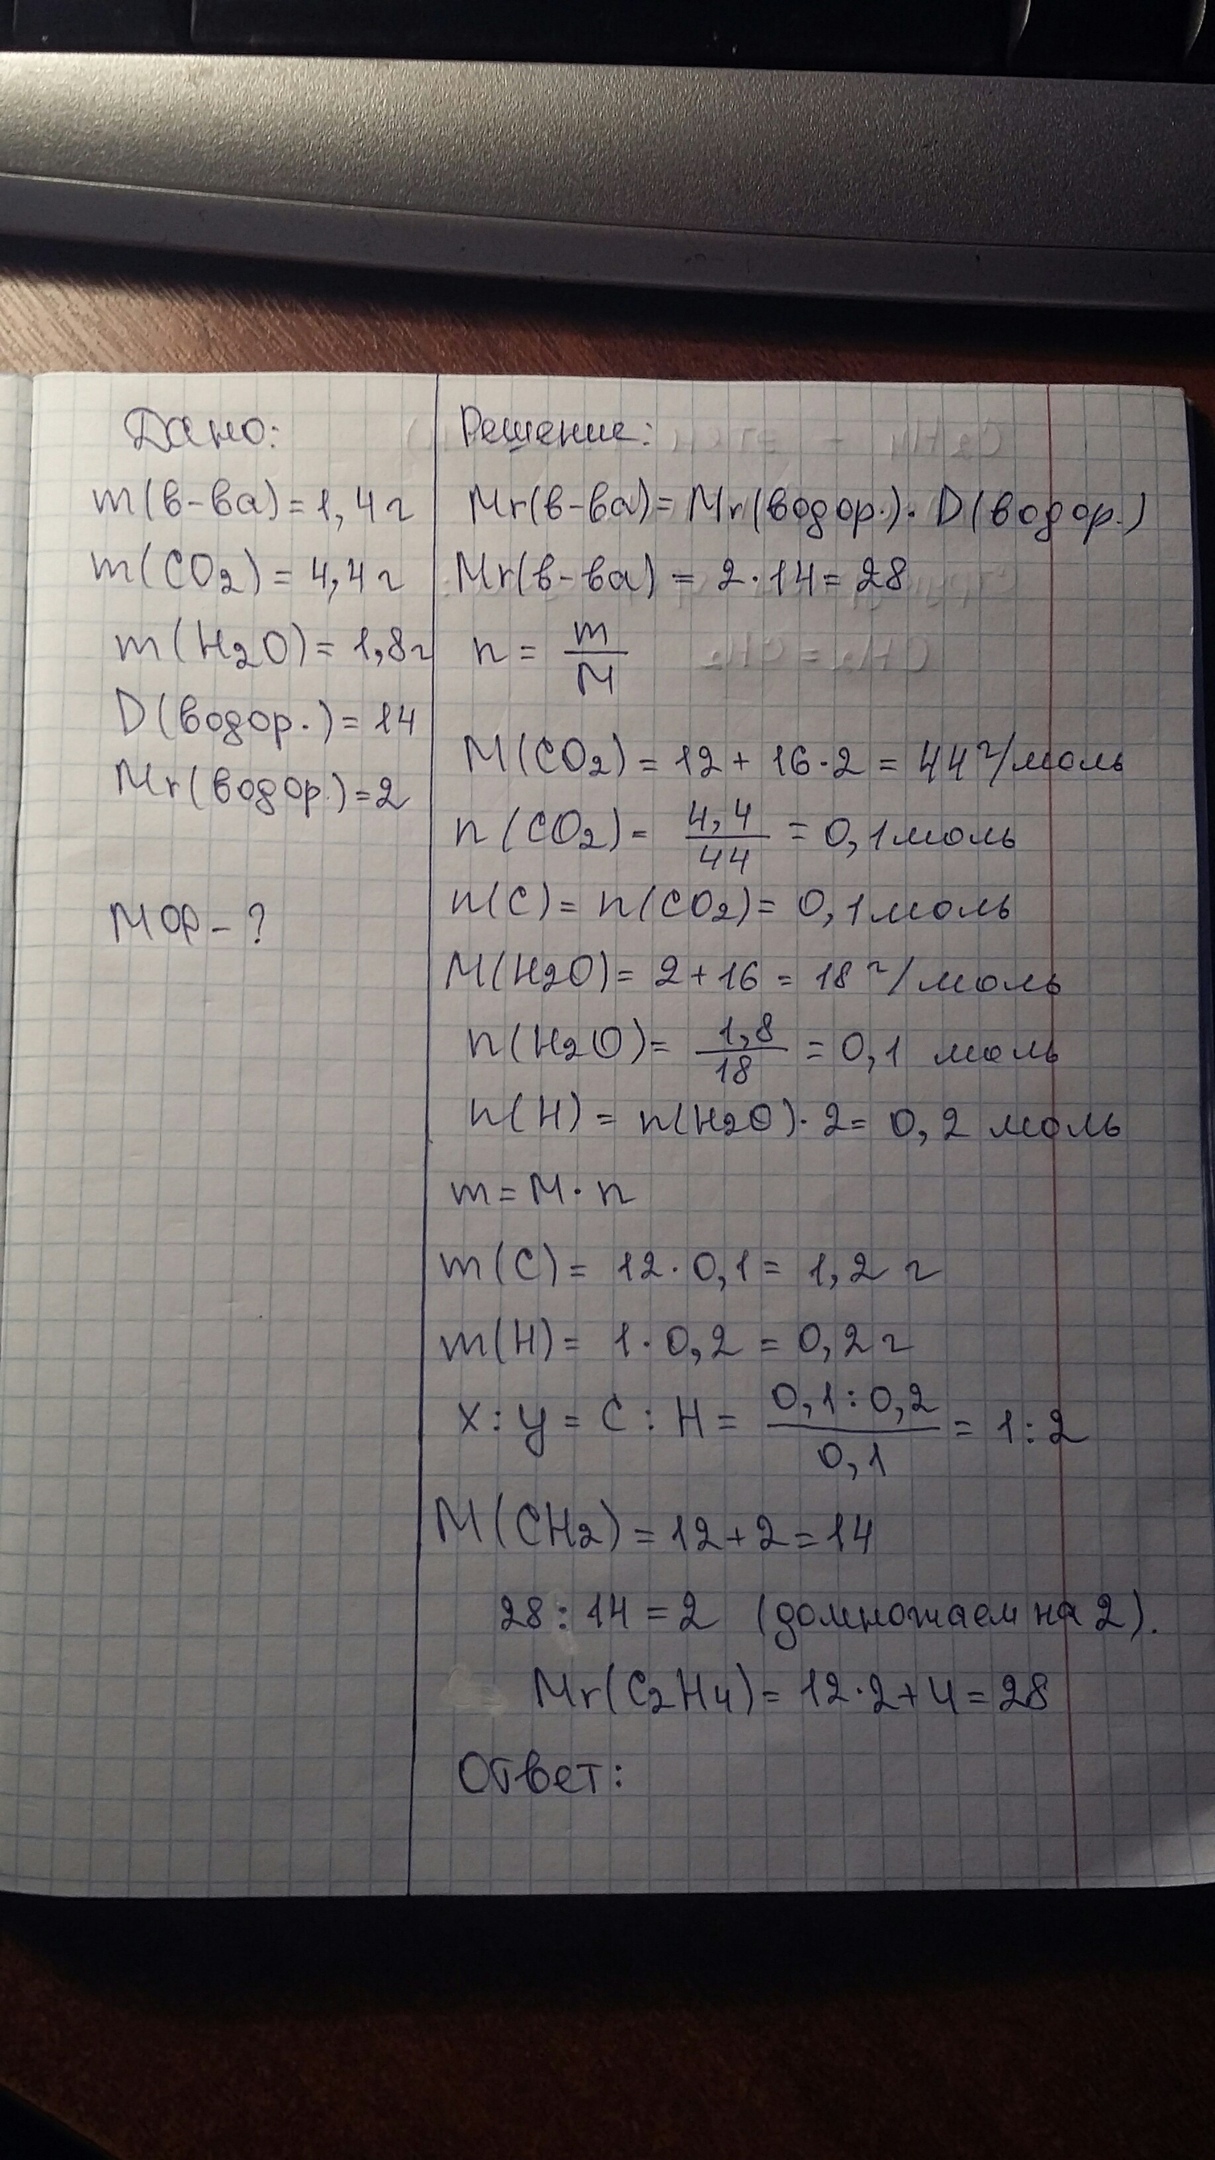 Дано:
m(в-ва)=1,4г
m(CO2)=4,4г
m(H2O)=1,8г
D(водор.)=14
Mr(водор.)=2
МФ-?
Решение:
Mr(в-ва)=Mr(водор.)·D(водор.)
Mr(в-ва)=2·14=28
n=m/M
M(CO2)=12+16·2=44г/моль
n(CO2)=4,4/44=0,1моль
n(C)=n(CO2)=0,1моль
M(H2O)=2+16=18г/моль
n(H2O)=1,8/18=0,1 моль
n(H)=n(H2O)·2=0,2 моль
m=M·n
m(C)=12·0,1=1,2 г
m(H)=1·0,2=0,2г
x:y=C:H=0,1:0,2/0,1=1:2
M(CH2)=12+2=14
28:14=2 (домножаем на 2).
Mr(C2H4)=12·2+4=28
Ответ: